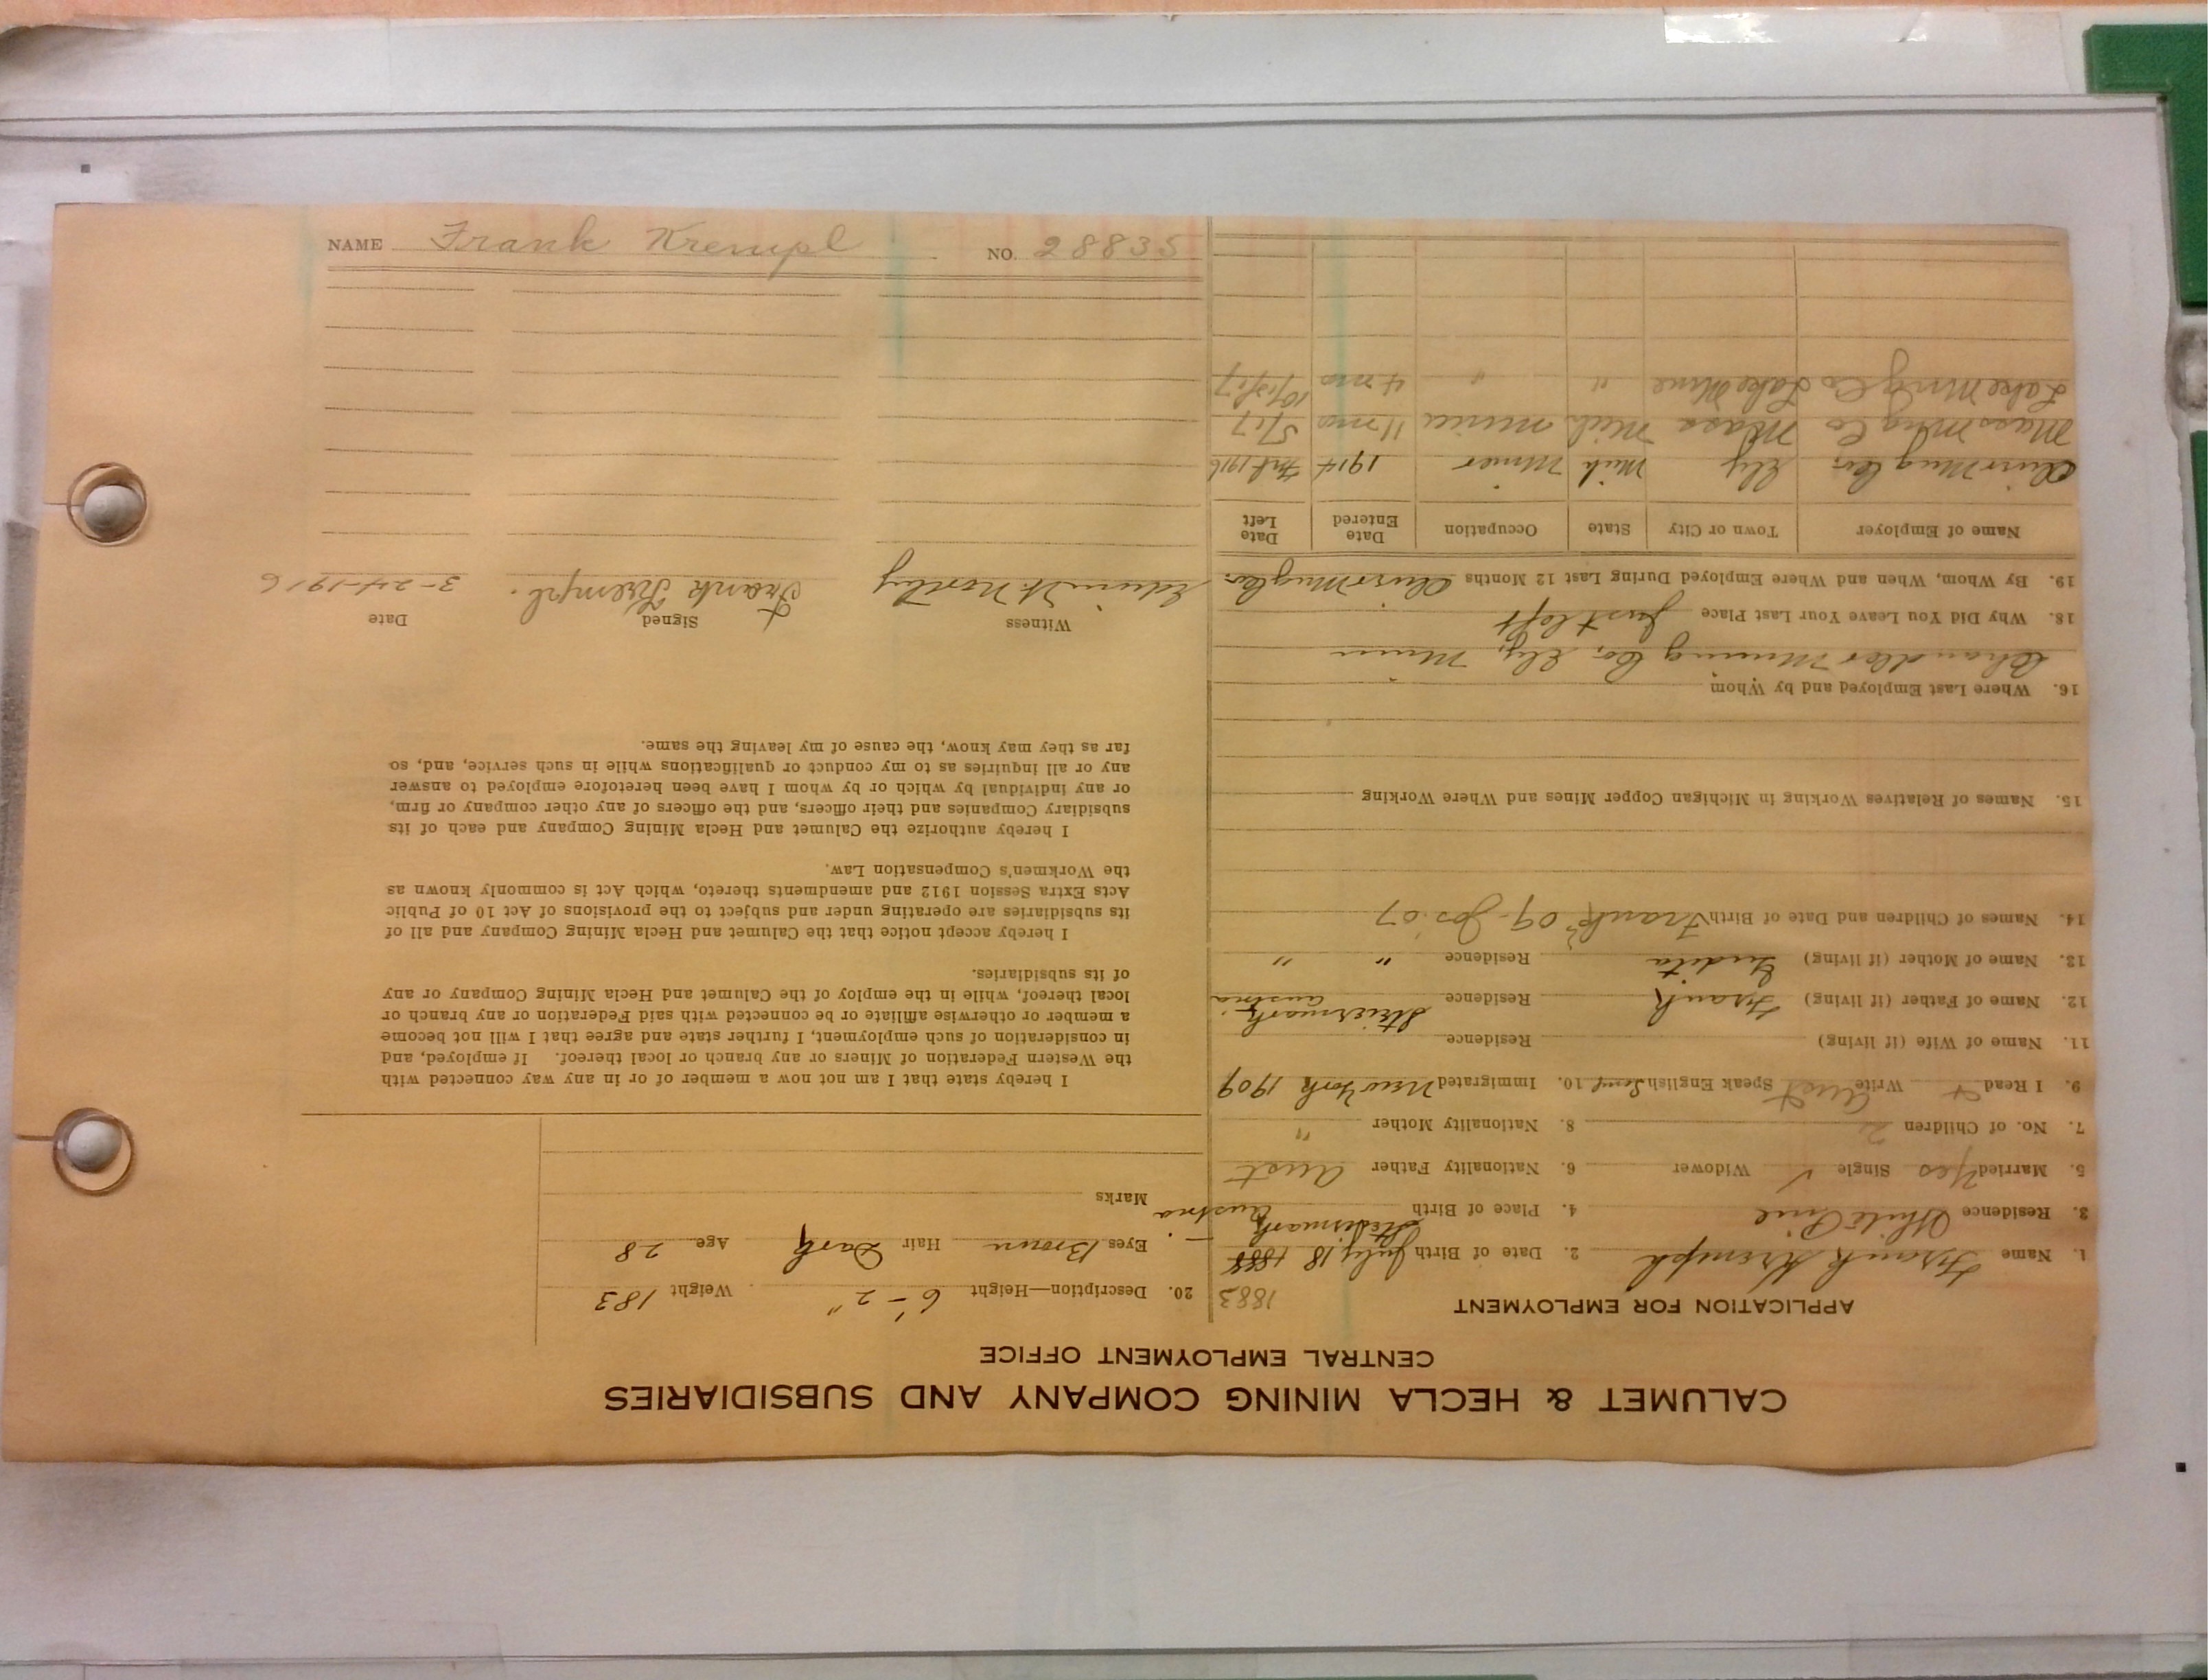 CALUMET & HECLA MINING COMPANY AND SUBSIDIARIES
CENTRAL EMPLOYMENT OFFICE
APPLICATION FOR EMPLOYMENT
1883
1. Name Frank Krempl 2. Date of Birth July 18 1888
3. Residence White Pine 4. Place of Birth Steiermark Austria
5. Married Yes Single ✓ Widower 6. Nationality Father Aust
7. No. of Children 2 8. Nationality Mother "
9. I Read + Write Aust Speak English 10. Immigrated New York 1909
11. Name of Wife (if living) Residence
12. Name of Father (if living) Frank Residence Steiermark Austria
13. Name of Mother (if living) Residence " "
14. Names of Children and Date of Birth Frank 09 - Jos. 07
15. Names of Relatives Working in Michigan Copper Mines and Where Working
16. Where Last Employed and by Whom
Chandler Mining Co, Ely, Minn
18. Why Did You Leave Your Last Place Just left
19. By Whom, When and Where Employed During Last 12 Months Mng Co.
Name of Employer Town or City State Occupation Date Entered Date Left
Mng Co. Ely Mich Miner 1914 1916
Mass Mng Co Mass Mich miner 11 mo 5/17
Lake Mng Co Lake Mine " " 4 mo 10/13/17
20. Description—Height 6'-2" Weight 183
Eyes Brown Hair Dark Age 28
Marks
I hereby state that I am not now a member of or in any way connected with
the Western Federation of Miners or any branch or local thereof. If employed, and
in consideration of such employment, I further state and agree that I will not become
a member or otherwise affiliate or be connected with said Federation or any branch or
local thereof, while in the employ of the Calumet and Hecla Mining Company or any
of its subsidiaries.
I hereby accept notice that the Calumet and Hecla Mining Company and all of
its subsidiaries are operating under and subject to the provisions of Act 10 of Public
Acts Extra Session 1912 and amendments thereto, which Act is commonly known as
the Workmen's Compensation Law.
I hereby authorize the Calumet and Hecla Mining Company and each of its
subsidiary Companies and their officers, and the officers of any other company or firm,
or any individual by which or by whom I have been heretofore employed to answer
any or all inquiries as to my conduct or qualifications while in such service, and, so
far as they may know, the cause of my leaving the same.
Witness Signed Date
Edwin Frank Krempl. 3-24-1916
NAME Frank Krempl NO. 28835